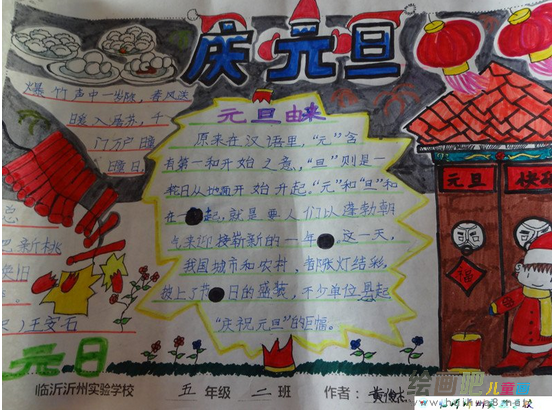 庆元旦
爆竹声中一岁除,春风送
暖入屠苏,千
门万户曈
曈日,
总
把新桃
换旧
王安石
元日
元旦由来
原来在汉语里,"元"含
有第一和开始之意,"旦"则是一
轮日从地面开始升起,"元"和"旦"和
在一起,就是要人们以蓬勃朝
气来迎接崭新的一年。这一天,
我国城市和农村,都张灯结彩,
披上了节日的盛装,不少单位悬起
"庆祝元旦"的巨幅。
元旦
快
福
临沂沂州实验学校 五年级 二班 作者:黄俊
绘画吧 儿童画